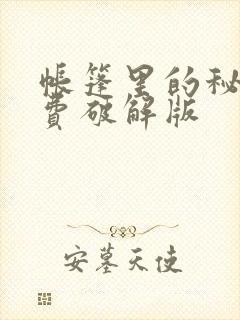 帐篷里的秘
费破解版
安墓天使